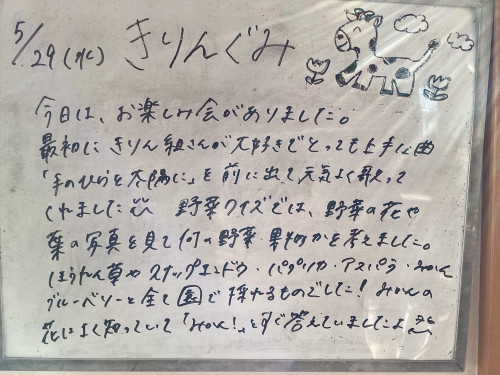 5/29(水) きりんぐみ
今日は、お楽しみ会がありました。
最初に きりん組さんが大好きでとっても上手な曲
「手のひらを太陽に」を前に出て元気よく歌って
くれました 野菜クイズでは、野菜の花や
葉の写真を見て何の野菜・果物かを考えました。
ほうれん草やスナップエンドウ・パプリカ・アスパラ・みかん
ブルーベリーと全て園で採れるものでした! みかんの
花はよく知っていて「みかん!」とすぐ答えていましたよ